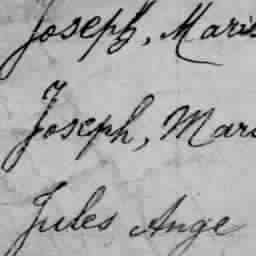 Joseph, Maris
Joseph, Mari
Jules Ange